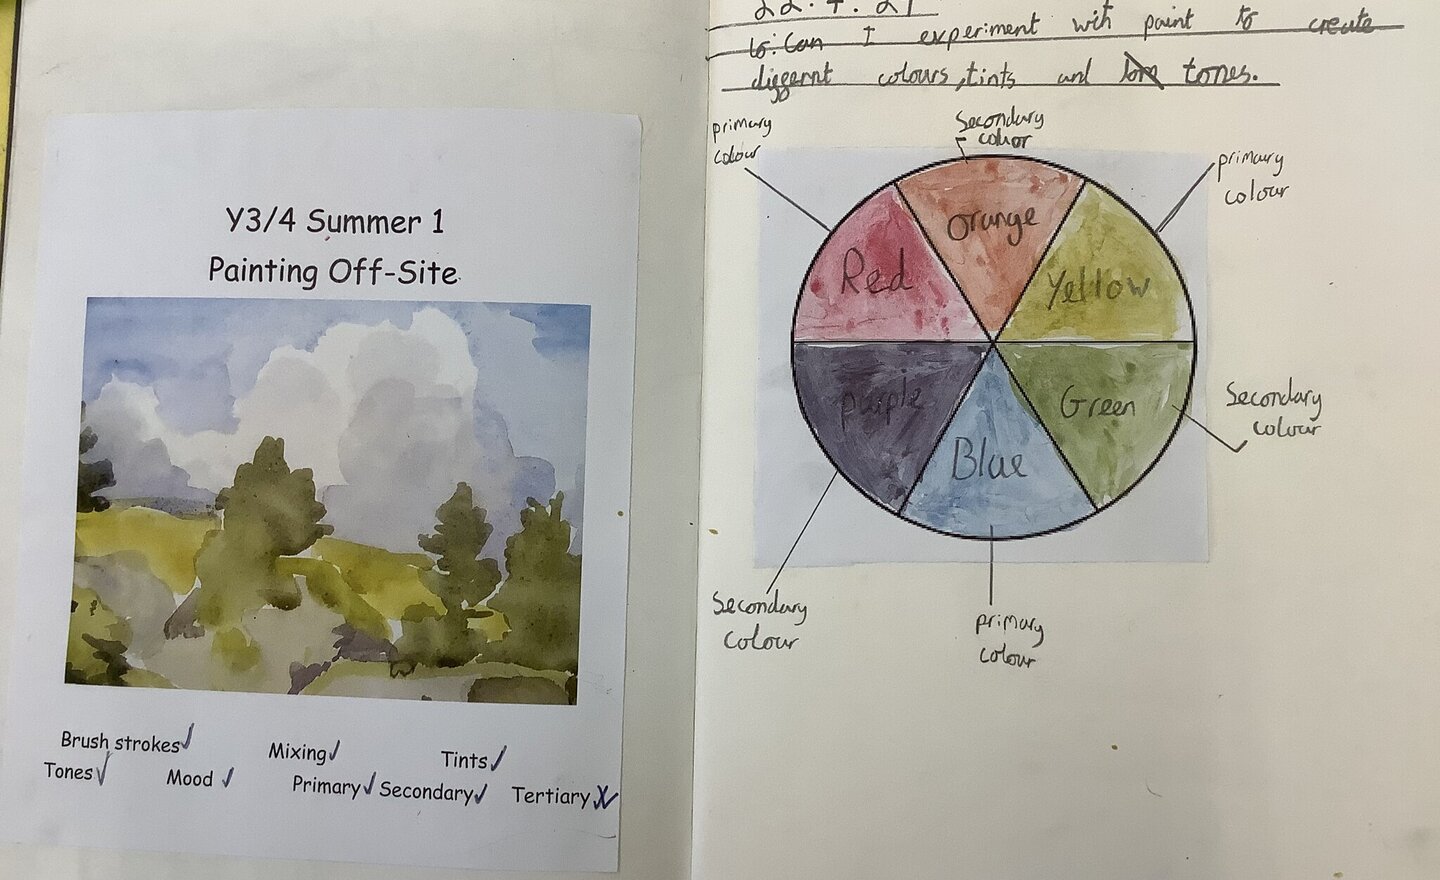 Y3/4 Summer 1
Painting Off-Site
Brush strokes✓ Mixing✓ Tints✓
Tones✓ Mood✓ Primary✓ Secondary✓ Tertiary
22.4.21
to: Can I experiment with paint to create
diggernt colours, tints and tones.
primary
colour
Secondary
colour
primary
colour
Red
Orange
Yellow
Purple
Blue
Green
Secondary
Colour
Secondary
Colour
primary
colour